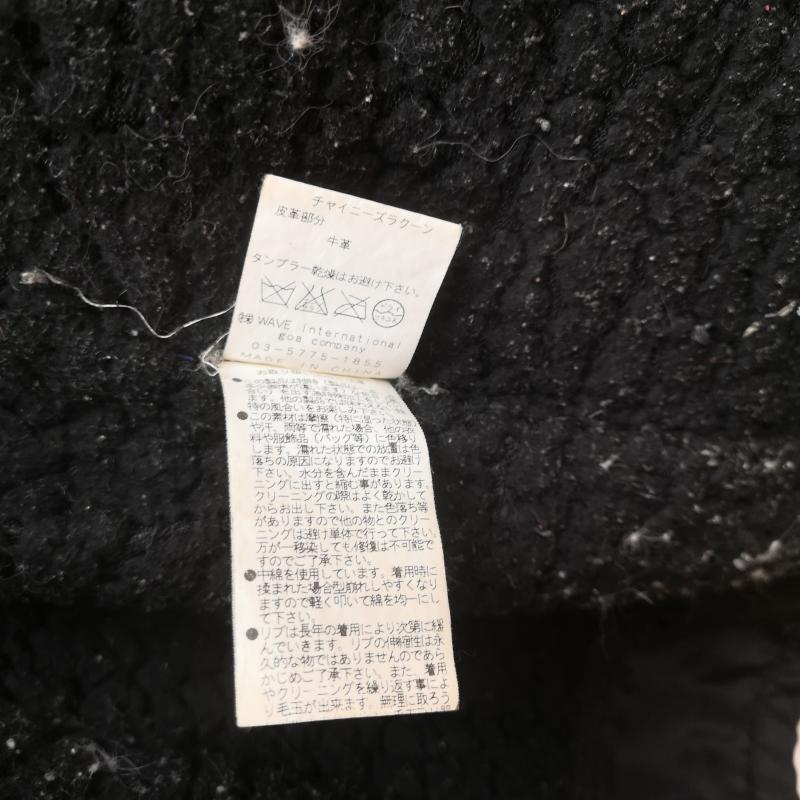 チャイニーズラクーン
皮革部分
牛革
タンブラー乾燥はお避け下さい。
ドライ
セキユ系
㈱WAVE International
goa company
03-5775-1855
MADE IN CHINA
お取り扱
ます。他の製品で
特の風合いをお楽しみ下さい。
●この素材は摩擦(特に湿った状態)
や汗、雨等で濡れた場合、他の衣
料や服飾品(バッグ等)に色移り
します。濡れた状態での放置は色
落ちの原因になりますのでお避け
下さい。水分を含んだままクリー
ニングに出すと縮む事があります。
クリーニングの際はよく乾かして
からお出し下さい。また色落ち等
がありますので他の物とのクリー
ニングは避け単体で行って下さい。
万が一移染しても修復は不可能で
すのでご了承下さい。
●中綿を使用しています。着用時に
揉まれた場合型崩れしやすくなり
ますので軽く叩いて綿を均一にし
て下さい。
●リブは長年の着用により次第に緩
んでいきます。リブの伸縮性は永
久的な物ではありませんのであら
かじめご了承下さい。また、着用
やクリーニングを繰り返す事によ
り毛玉が出来ます。無理に取ろう